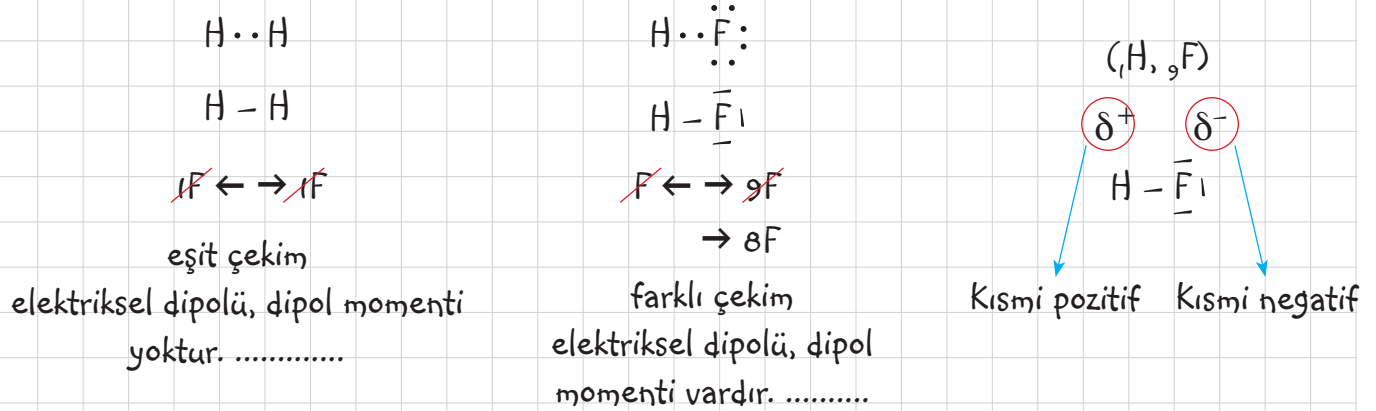 H··H
H – H
1F ← → 1F
eşit çekim
elektriksel dipolü, dipol momenti
yoktur. .............
H··F:
H – F
F ← → 9F
→ 8F
farklı çekim
elektriksel dipolü, dipol
momenti vardır. ..........
(₁H, ₉F)
δ⁺ δ⁻
H – F
Kısmi pozitif Kısmi negatif